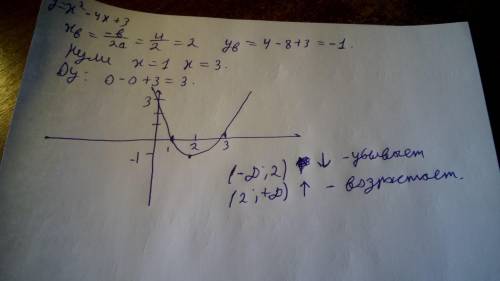 y=x²-4x+3
x_в = -в/2a = 4/2 = 2    y_в = 4-8+3 = -1.
Нули    x=1  x=3.
Oy:    0-0+3=3.
3
1 2 3
-1
(-∞; 2) ↓ - убывает
(2; +∞) ↑ - возрастает.